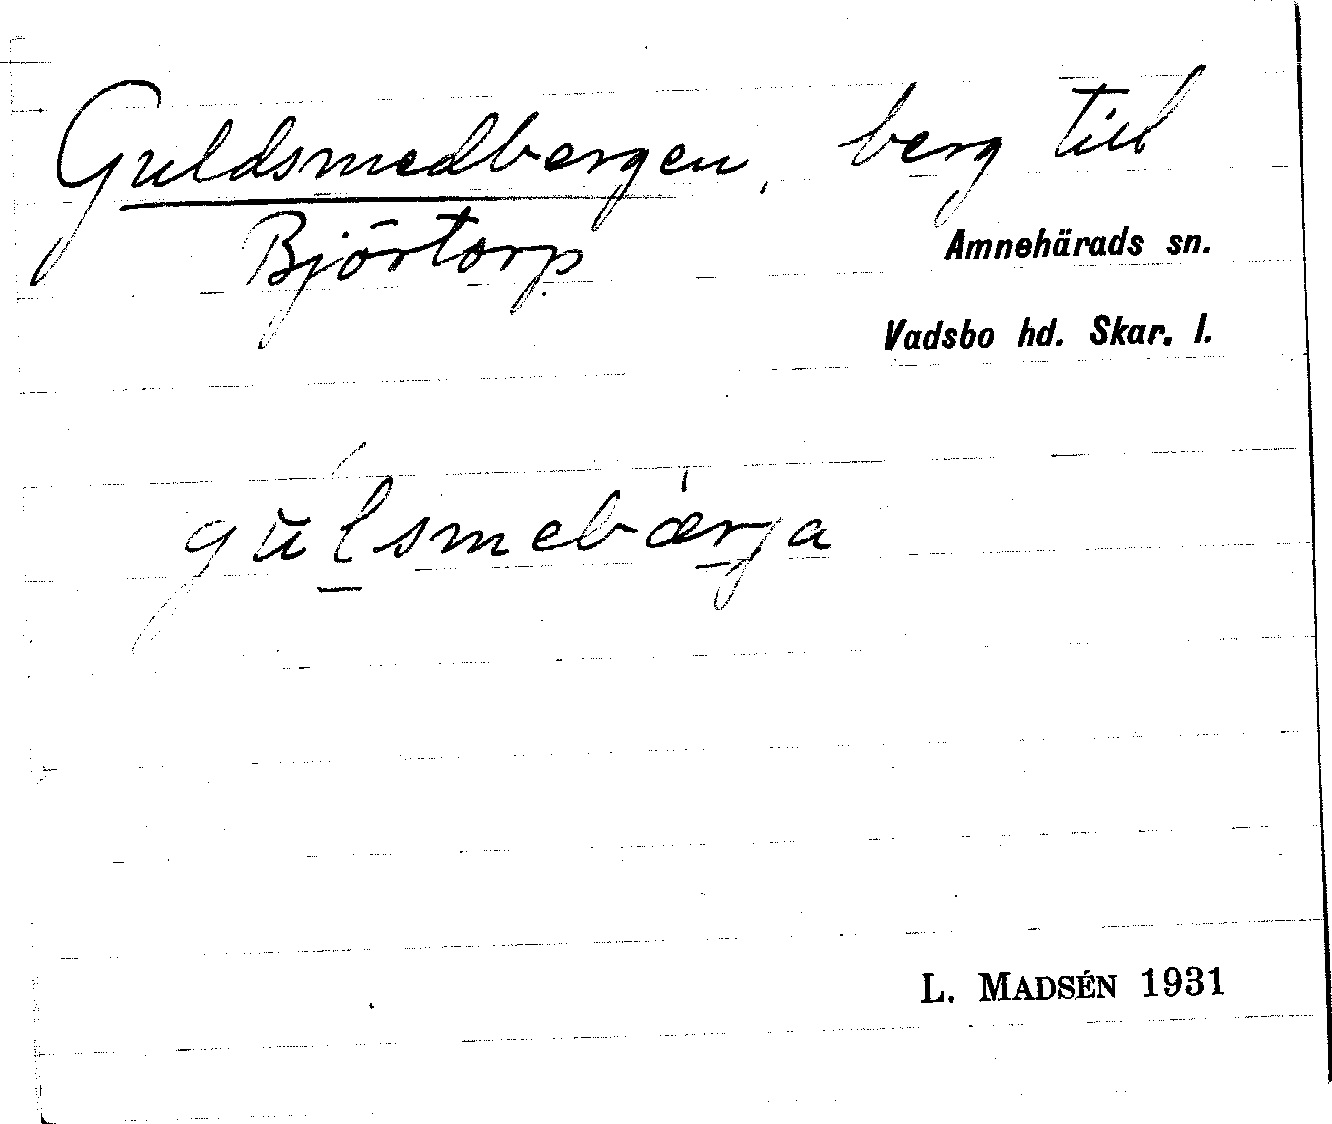 Guldsmedbergen, berg till
Björtorp
Amnehärads sn.
Vadsbo hd. Skar. l.
gu̇lsmebærja
L. MADSÉN 1931